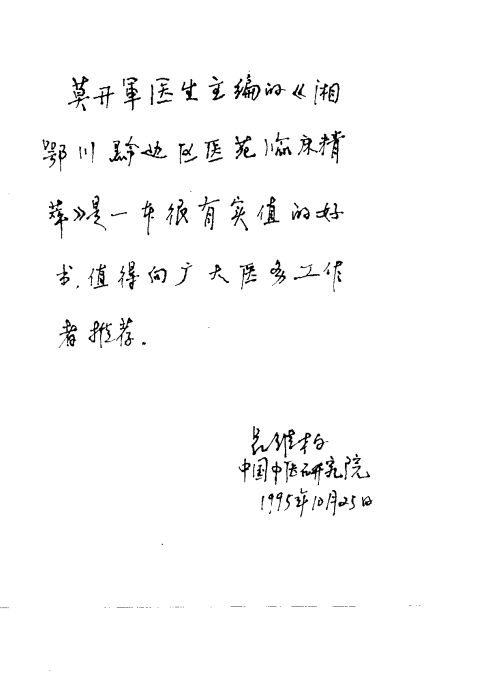 莫开軍医生主编的《湘
鄂川黔边区医苑临床精
萃》是一本很有实值的好
书,值得向广大医务工作
者推荐.
吕维柏
中国中医研究院
1995年10月25日